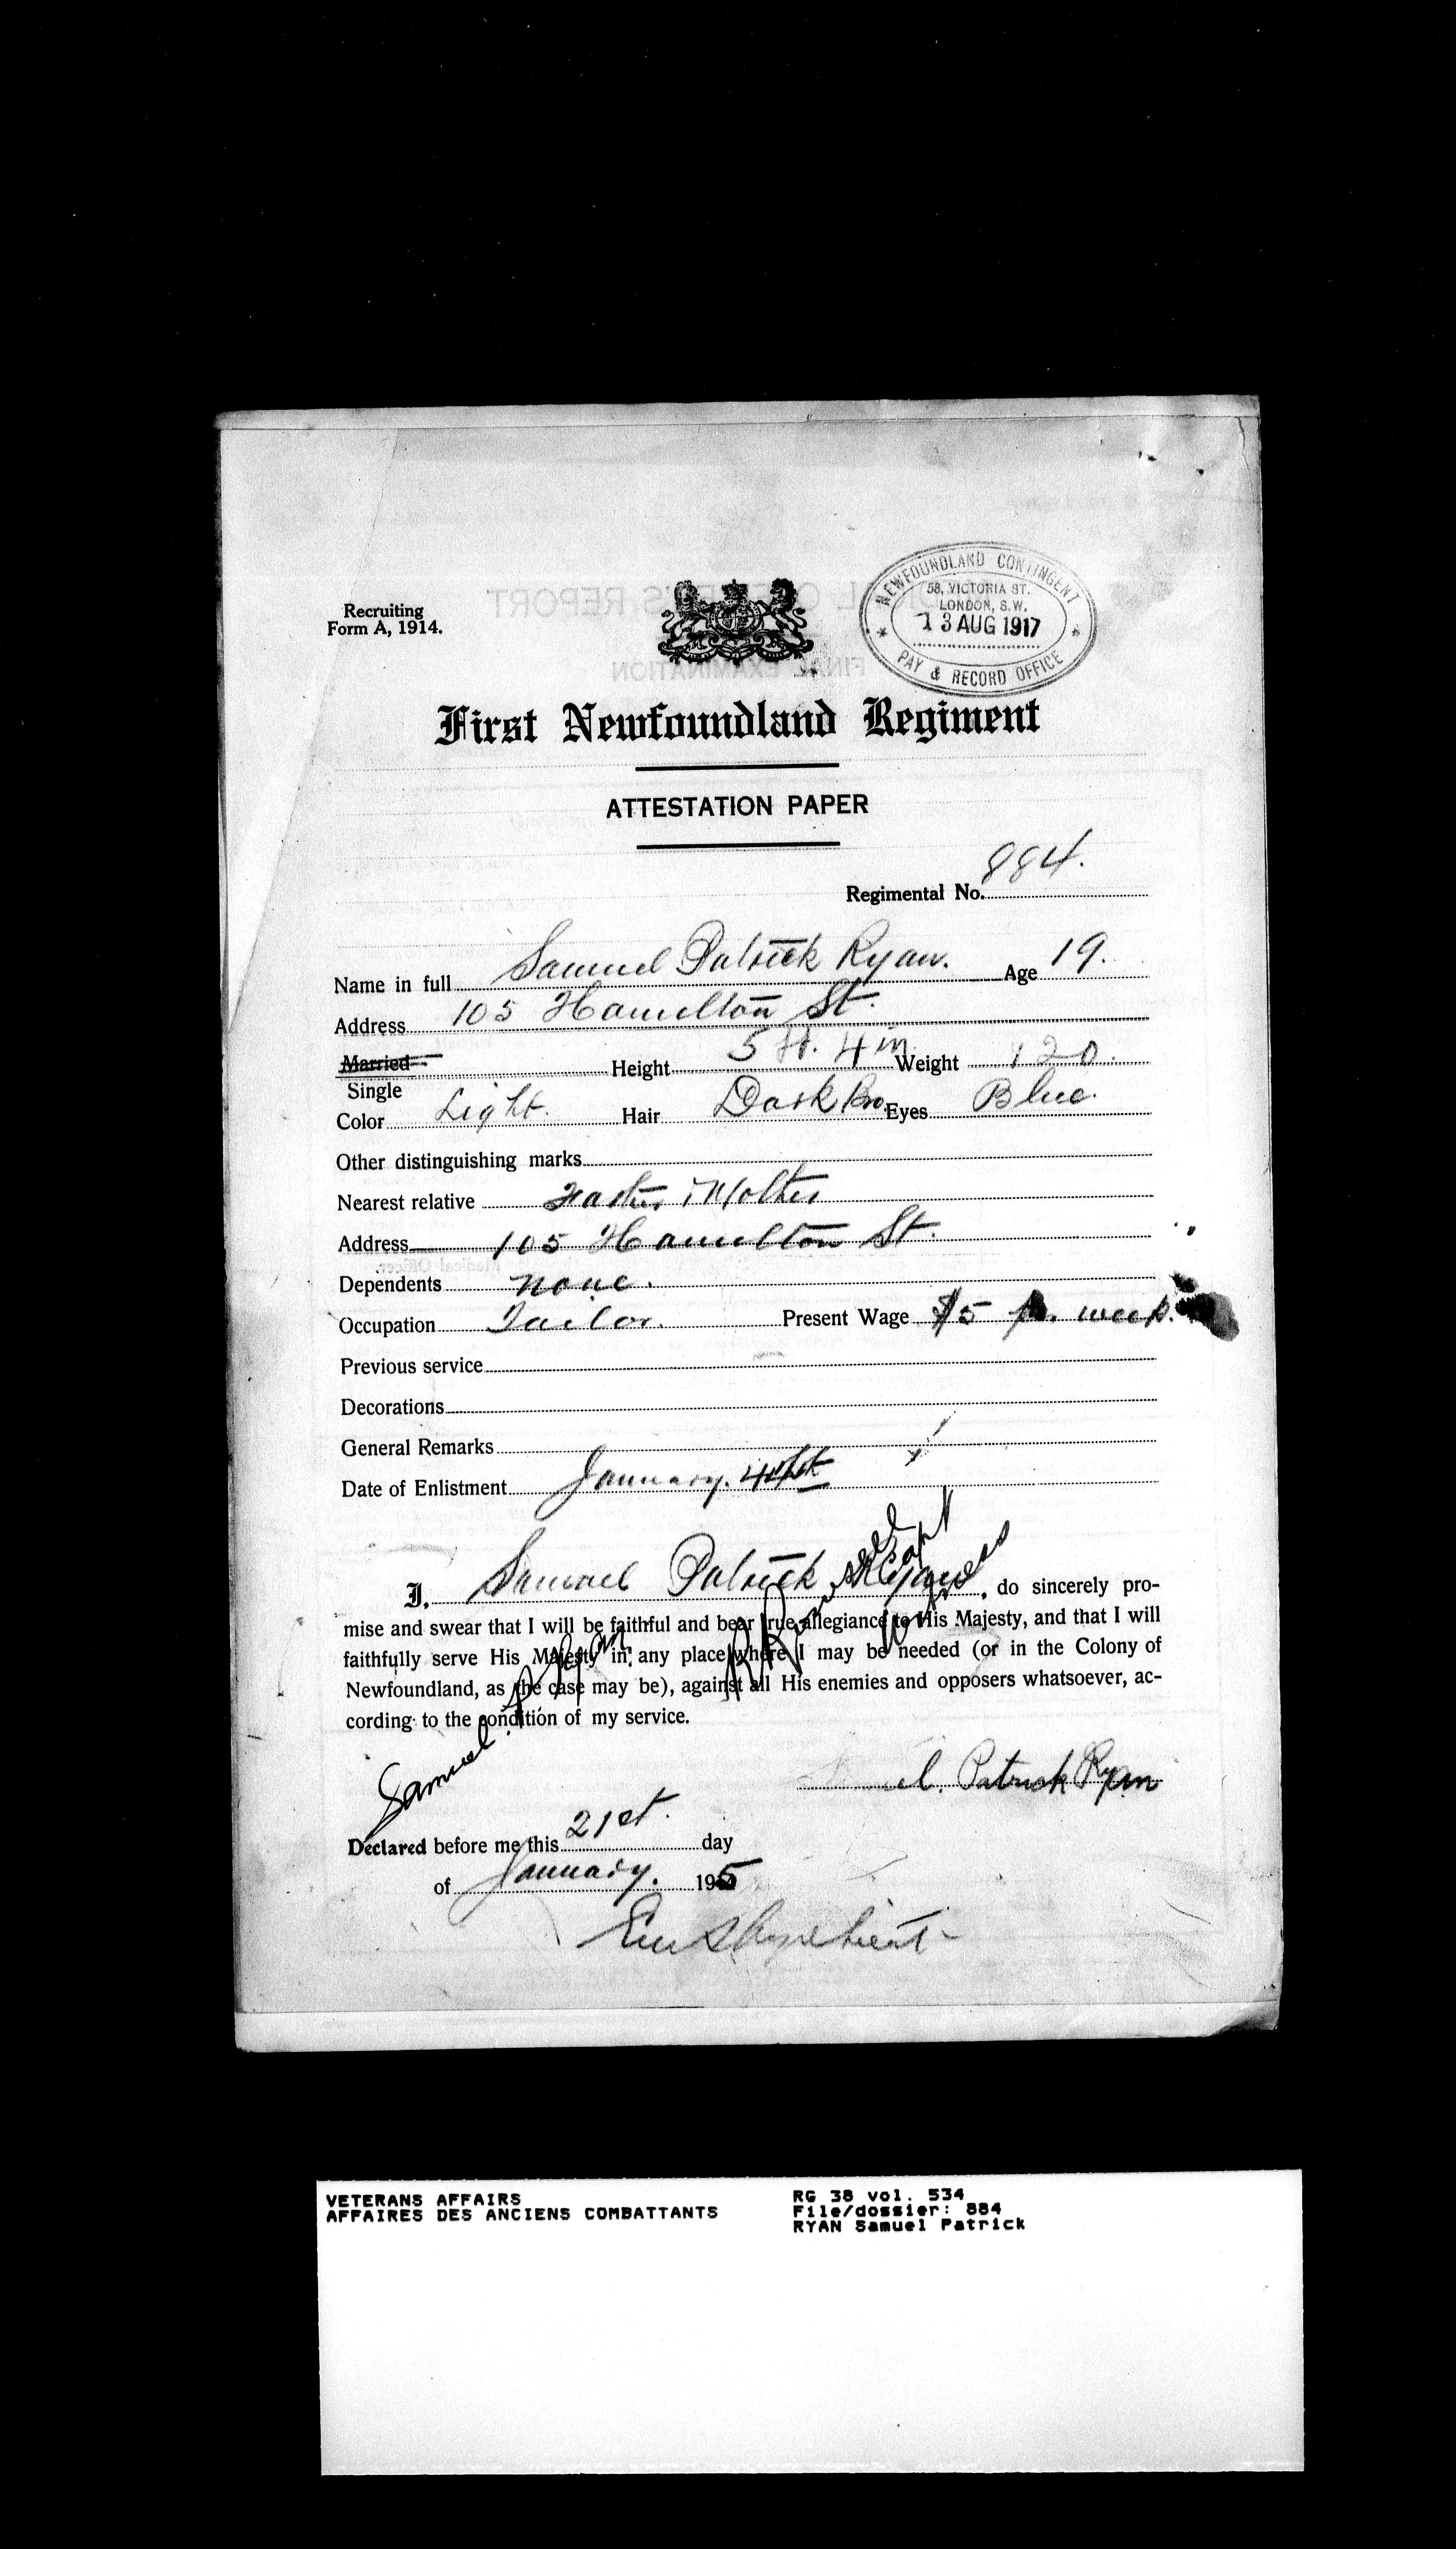 NEWFOUNDLAND CONTINGENT
58, VICTORIA ST.
LONDON, S.W.
13 AUG 1917
PAY & RECORD OFFICE
Recruiting
Form A, 1914.
First Newfoundland Regiment
ATTESTATION PAPER
Regimental No. 884.
Name in full Samuel Patrick Ryan. Age 19.
Address 105 Hamilton St.
Married Height 5 ft. 4 in Weight 120.
Single
Color Light. Hair Dark Bro. Eyes Blue.
Other distinguishing marks
Nearest relative Father Mother
Address 105 Hamilton St.
Dependents none.
Occupation Tailor. Present Wage $5 pr. week.
Previous service
Decorations
General Remarks
Date of Enlistment January.
I, Samuel Patrick Ryan, do sincerely pro-
mise and swear that I will be faithful and bear true allegiance to His Majesty, and that I will
faithfully serve His Majesty in any place where I may be needed (or in the Colony of
Newfoundland, as the case may be), against all His enemies and opposers whatsoever, ac-
cording to the condition of my service.
Samuel P Ryan.
Capt
Witness
Patrick Ryan
Declared before me this 21st. day
of January. 1915
VETERANS AFFAIRS
AFFAIRES DES ANCIENS COMBATTANTS
RG 38 vol. 534
File/dossier: 884
RYAN Samuel Patrick